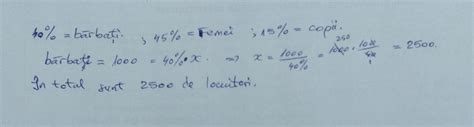 40% = bărbați ; 45% = femei ; 15% = copii.
bărbați = 1000 = 40% · x. => x = 1000/40% = 1000 · 100/40 = 2500.
În total sunt 2500 de locuitori.